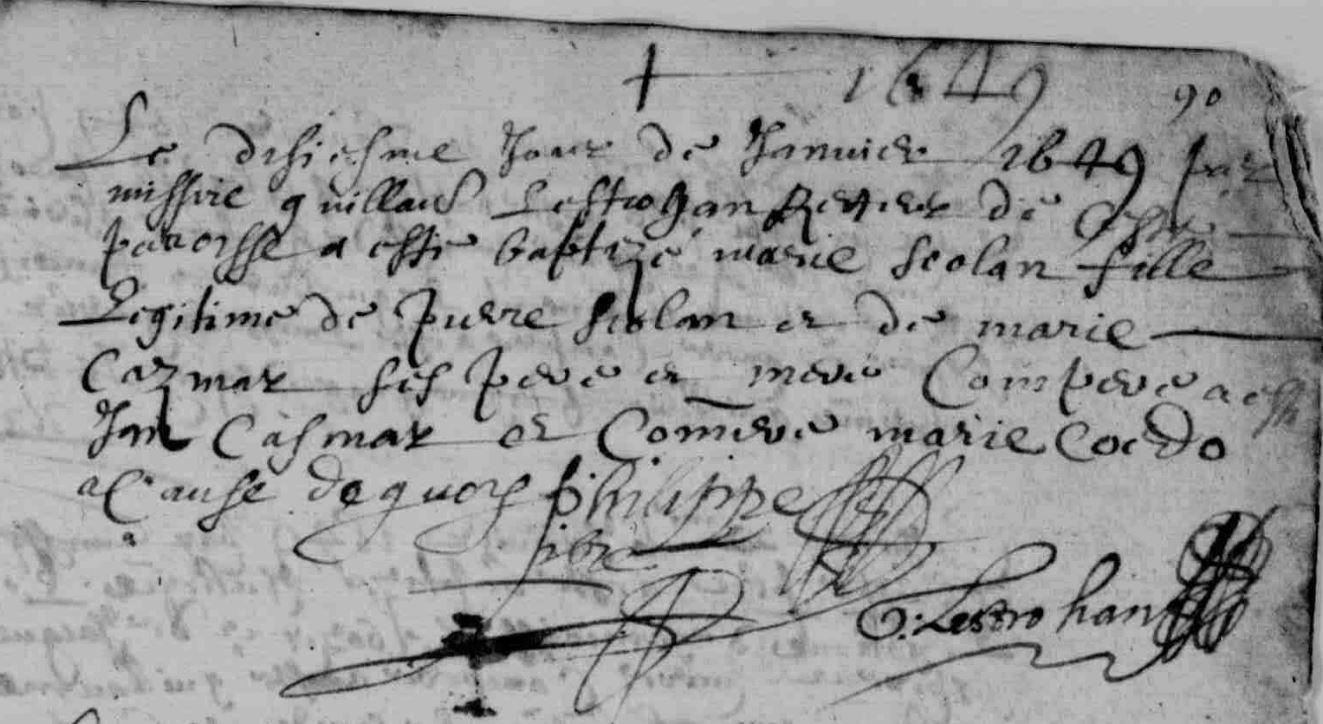 1649 90
Le disiesme Jour de Janvier 1649 par
missire guillau Lestrohan Recteur de ceste
paroisse a esté baptizé marie scolan fille
Legitime de pierre scolan et de marie
Cazmar ses pere et mere Compere a esté
Jan Casmar et Comere marie Coedo
a Cause de quoy philippe
pbre
G: Lestrohan